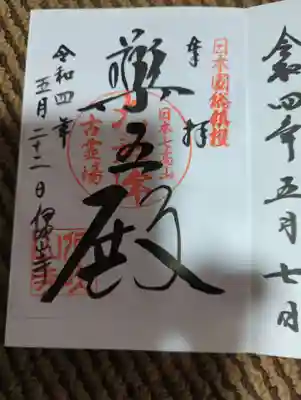 令和四年五月七日
奉拝
日本七高山
薬王殿
古霊場
令和四年
五月二十二日
伊吹山寺